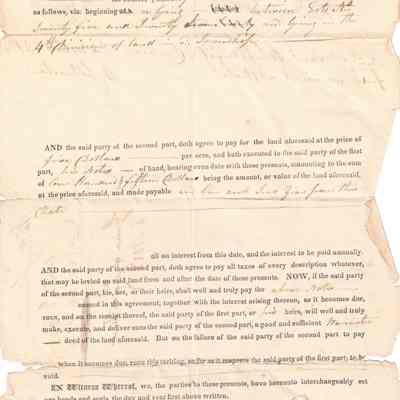 as follows, viz: beginning at a lying between Lots No
Twenty five and Twenty and lying in the
4th Division of land in Township
AND the said party of the second part, doth agree to pay for the land aforesaid at the price of
Dollars per acre, and hath executed to the said party of the first
part, his Notes of hand, bearing even date with these presents, amounting to the sum
of Hundred & fifteen Dollars being the amount, or value of the land aforesaid,
at the price aforesaid, and made payable in one and two years from this
date
all on interest from this date, and the interest to be paid annually.
AND the said party of the second part, doth agree to pay all taxes of every description whatever,
that may be levied on said land from and after the date of these presents. NOW, if the said party
of the second part, his, her, or their heirs, shall well and truly pay the above Notes
named in this agreement, together with the interest arising thereon, as it becomes due,
then, and on the receipt thereof, the said party of the first part, or his heirs, will well and truly
make, execute, and deliver unto the said party of the second part, a good and sufficient Warrantee
deed of the land aforesaid. But on the failure of the said party of the second part to pay
when it becomes due, then this writing, so far as it respects the said party of the first part, to be
void.
IN Witness Whereof, we, the parties to these presents, have hereunto interchangeably set
our hands and seals, the day and year first above written.